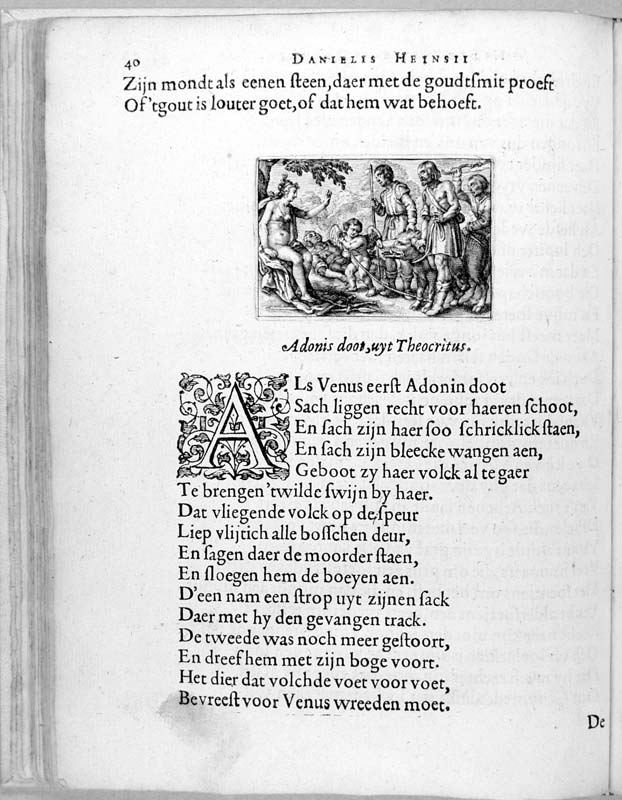 40
DANIELIS HEINSII
Zijn mondt als eenen ſteen, daer met de goudtſmit proeft
Of 'tgout is louter goet, of dat hem wat behoeft.
Adonis doot, uyt Theocritus.
ALs Venus eerſt Adonin doot
Sach liggen recht voor haeren ſchoot,
En ſach zijn haer ſoo ſchricklick ſtaen,
En ſach zijn bleecke wangen aen,
Geboot zy haer volck al te gaer
Te brengen 'twilde ſwijn by haer.
Dat vliegende volck op de ſpeur
Liep vlijtich alle boſſchen deur,
En ſagen daer de moorder ſtaen,
En ſloegen hem de boeyen aen.
D'een nam een ſtrop uyt zijnen ſack
Daer met hy den gevangen track.
De tweede was noch meer geſtoort,
En dreef hem met zijn boge voort.
Het dier dat volchde voet voor voet,
Bevreeſt voor Venus wreeden moet.
De